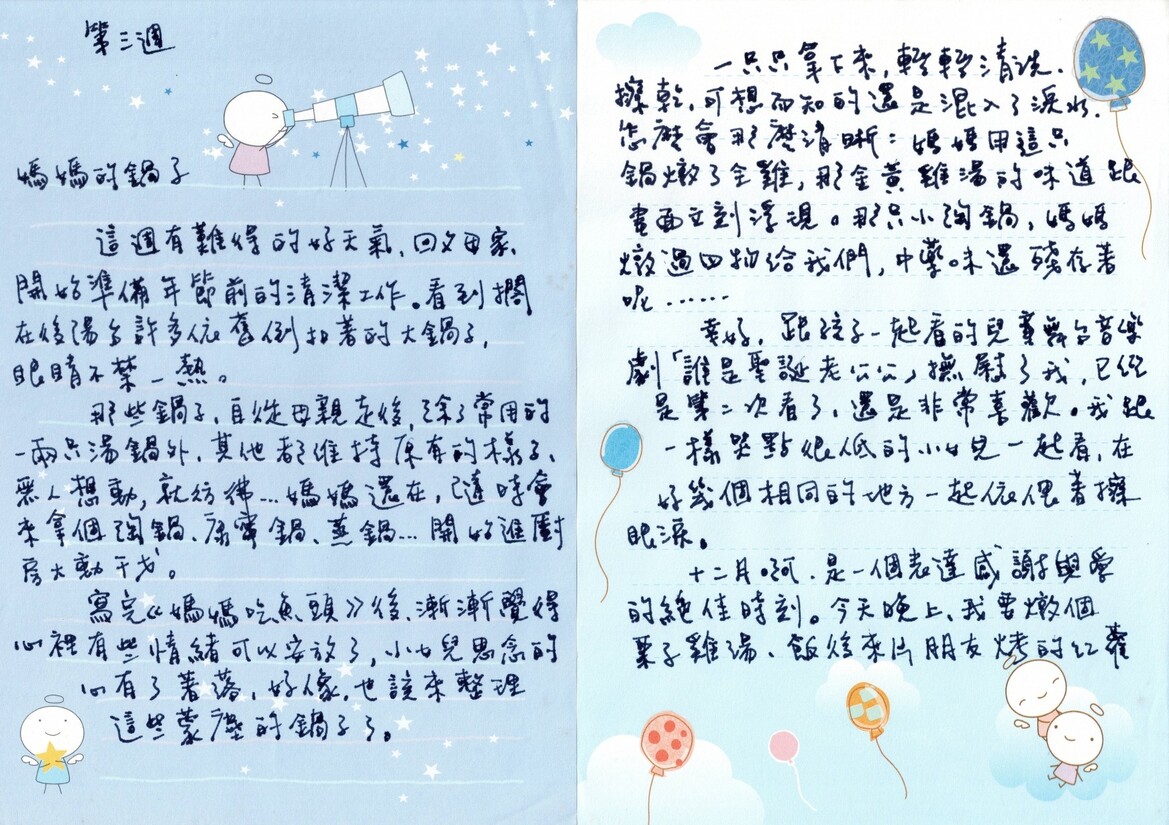 第三週
媽媽的鍋子
這週有難得的好天氣，回父母家，
開始準備年節前的清潔工作。看到擱
在後陽台許多依舊倒扣著的大鍋子，
眼睛不禁一熱。
那些鍋子，自從母親走後，除了常用的
一兩只湯鍋外，其他都維持原有的樣子、
無人想動，就彷彿…媽媽還在，隨時會
來拿個陶鍋、康寧鍋、蒸鍋…開始進廚
房大動干戈。
寫完《媽媽吃魚頭》後，漸漸覺得
心裡有些情緒可以安放了，小女兒思念的
心有了著落，好像，也該來整理
這些蒙塵的鍋子了。
一只只拿下來，輕輕清洗、
擦乾，可想而知的還是混入了淚水。
怎麼會那麼清晰：媽媽用這只
鍋燉了全雞，那金黃雞湯的味道跟
畫面立刻浮現。那只小陶鍋，媽媽
燉過四物給我們，中藥味還殘存著
呢……
幸好，跟孩子一起看的兒童舞台音樂
劇「誰是聖誕老公公」撫慰了我，已經
是第二次看了，還是非常喜歡。我跟
一樣哭點很低的小女兒一起看，在
好幾個相同的地方一起依偎著擦
眼淚。
十二月啊，是一個表達感謝與愛
的絕佳時刻。今天晚上，我要燉個
栗子雞湯、飯後來片朋友烤的紅蘿